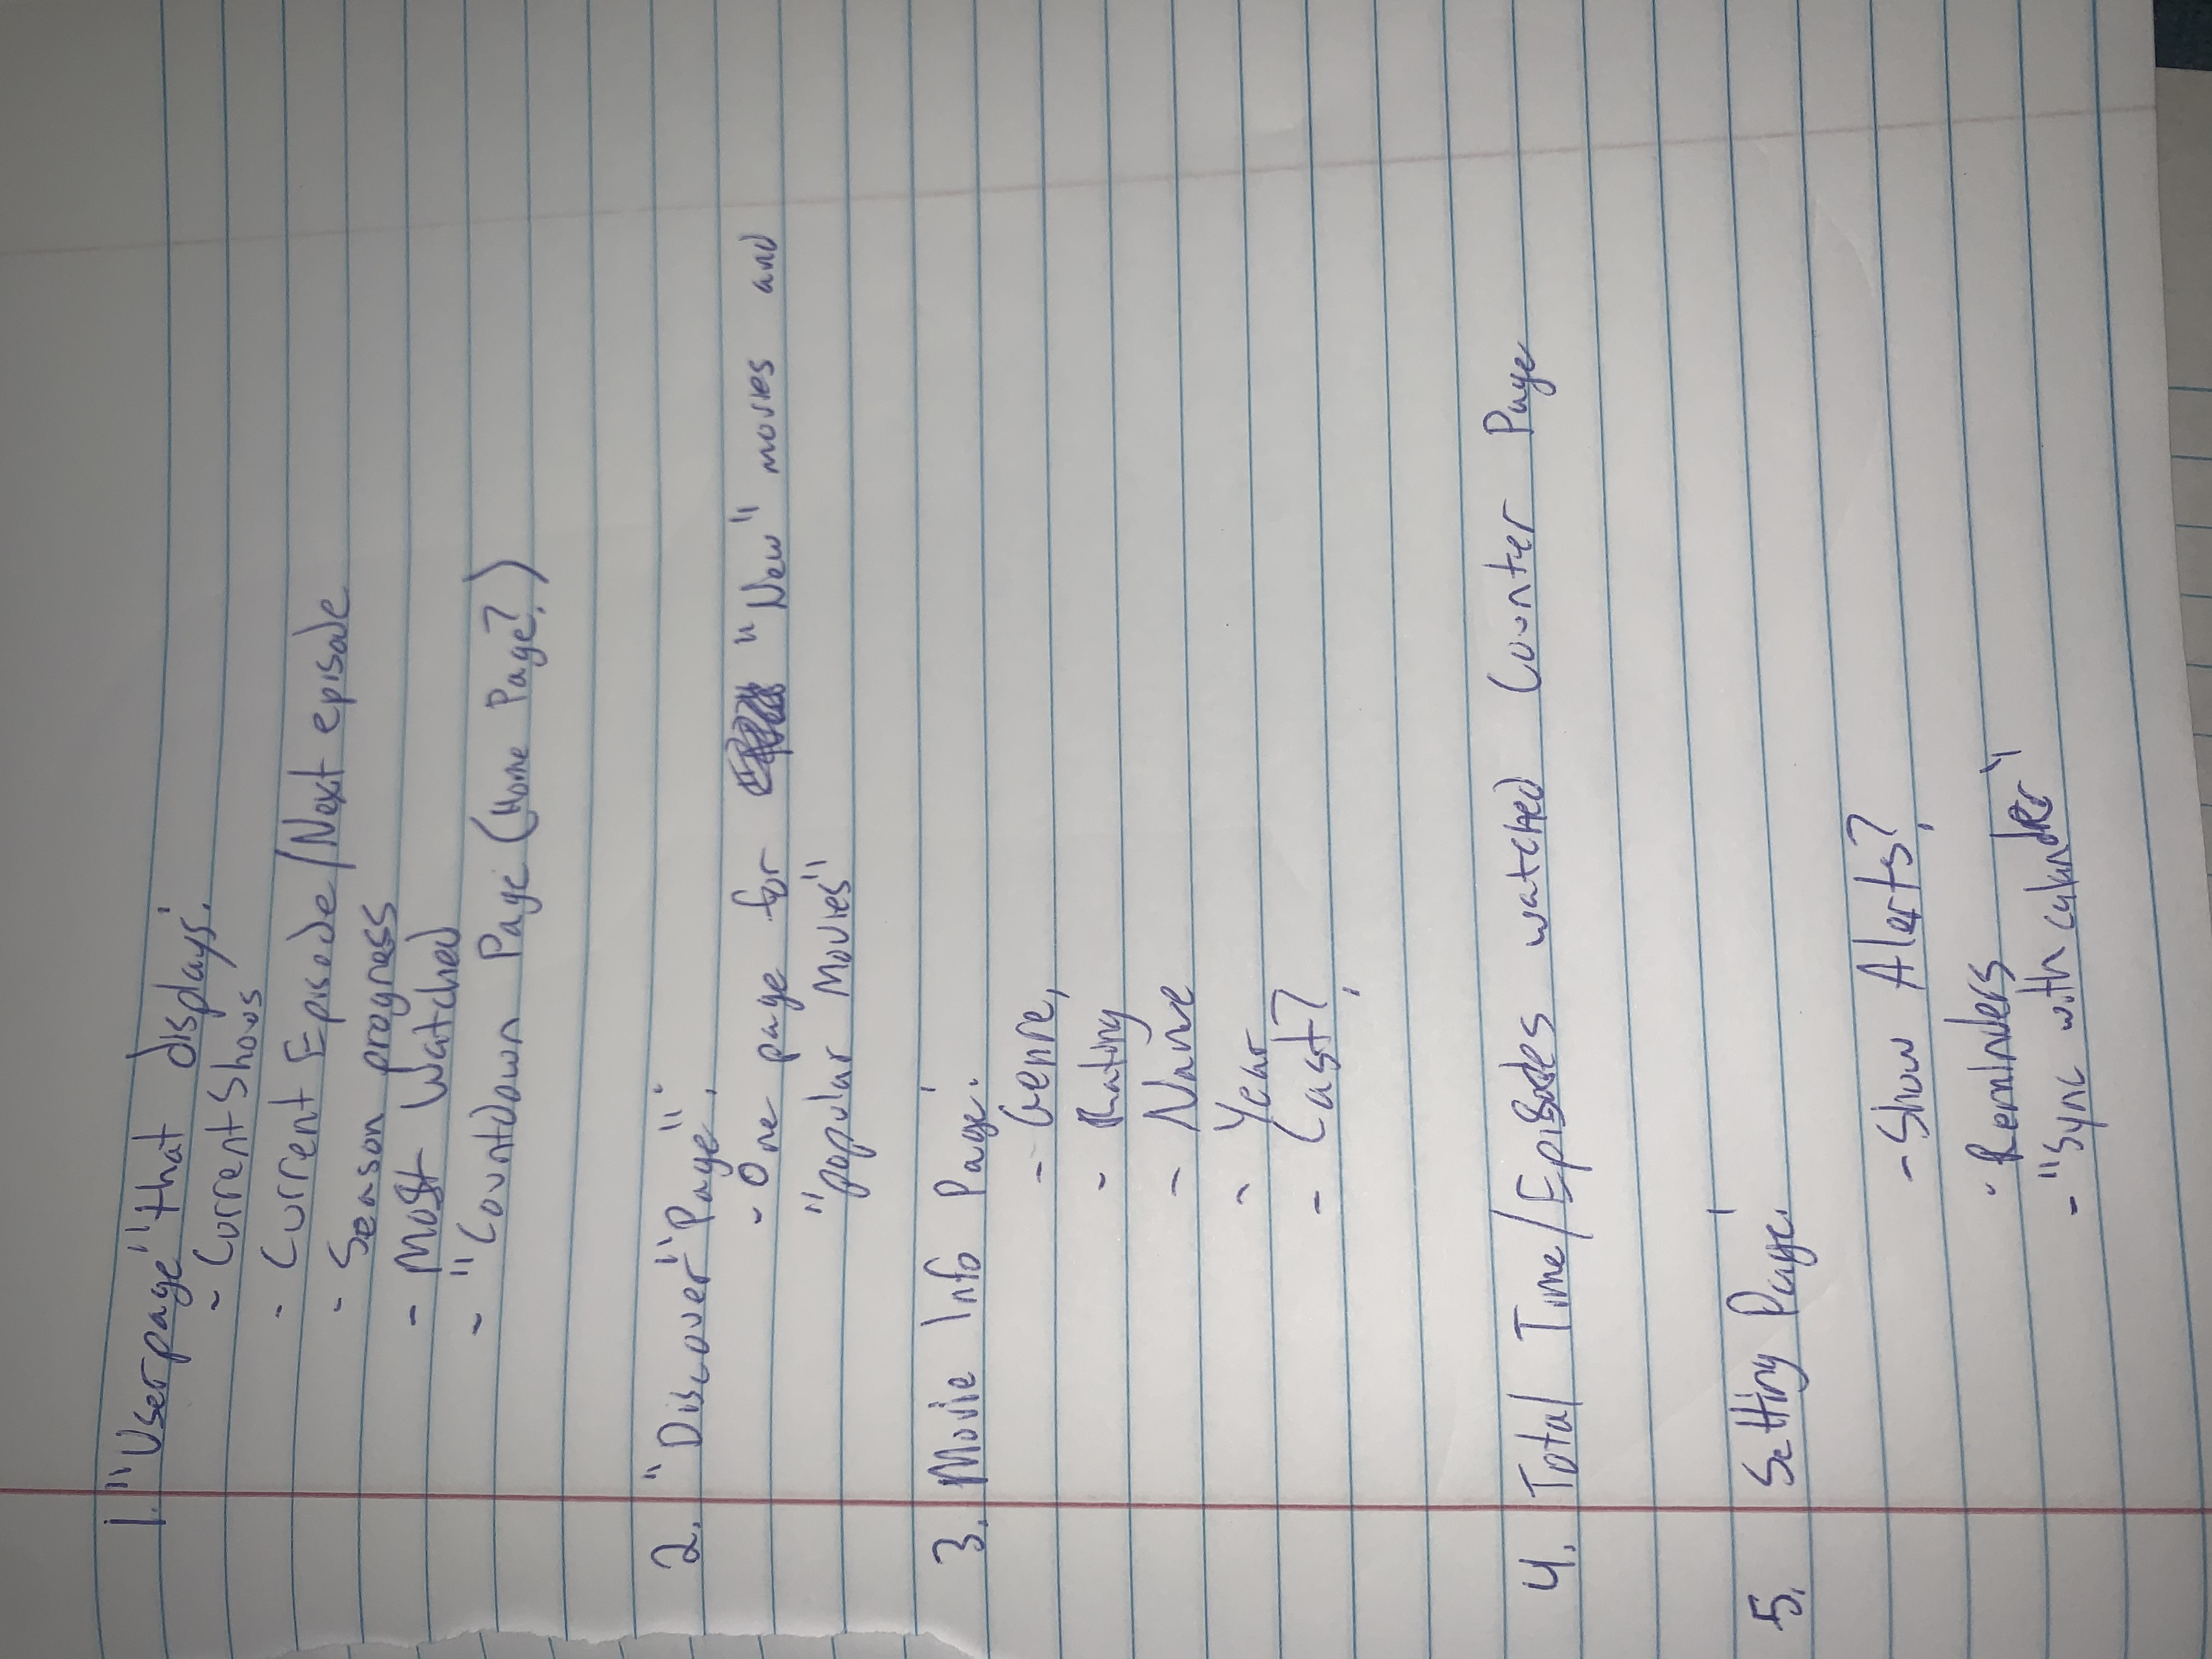 1. "Userpage" that displays:
- Current Shows
- Current Episode/Next episode
- Season progress
- Most Watched
- "Countdown Page (Home Page?)
2. "Discover" Page":
- One page for "New" movies and
"popular Movies"
3. Movie Info Page:
- Genre,
- Rating
- Name
- Year
- Cast?
4. Total Time/Episodes watched Counter Page
5. Setting Page:
- Show Alerts?
- Reminders
- "Sync with calander"